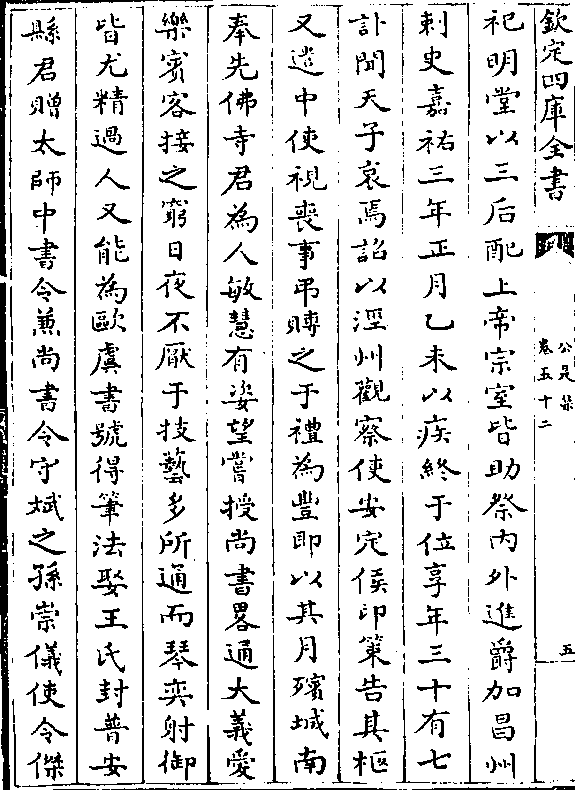 欽定四庫全書
公是集
卷五十二
五
祀明堂以三后配上帝宗室皆助祭内外進爵加昌州
刺史嘉祐三年正月乙未以疾終于位享年三十有七
訃聞天子哀焉詔以涇州觀察使安定侯印策告其柩
又遣中使視喪事弔賻之于禮為豐即以其月殯城南
奉先佛寺君為人敏慧有姿望嘗授尚書畧通大義愛
樂賓客接之窮日夜不厭于技藝多所通而琴奕射御
皆尤精過人又能為歐虞書號得筆法娶王氏封普安
縣君贈太師中書令兼尚書令守斌之孫崇儀使令傑